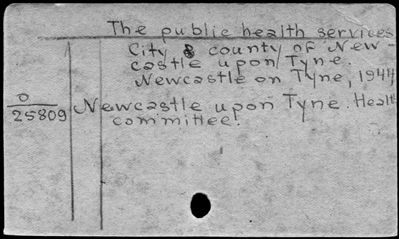 The public health services
City & county of New-
castle upon Tyne.
Newcastle on Tyne, 1944
O
25809
Newcastle upon Tyne. Healt
committee.